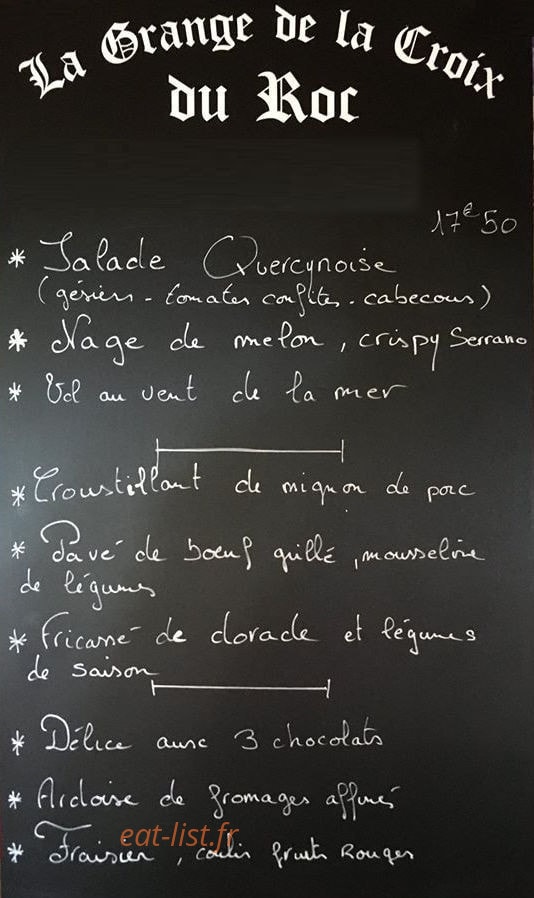 La Grange de la Croix
du Roc
17€50
* Salade Quercynoise
(gésiers - tomates confites - cabecous)
* Nage de melon, crispy Serrano
* Vol au vent de la mer
* Croustillant de mignon de porc
* Pavé de boeuf grillé, mousseline
de légumes
* Fricassé de dorade et légumes
de saison
* Délice aux 3 chocolats
* Ardoise de fromages affinés
eat-list.fr
* Fraisier, coulis fruits Rouges